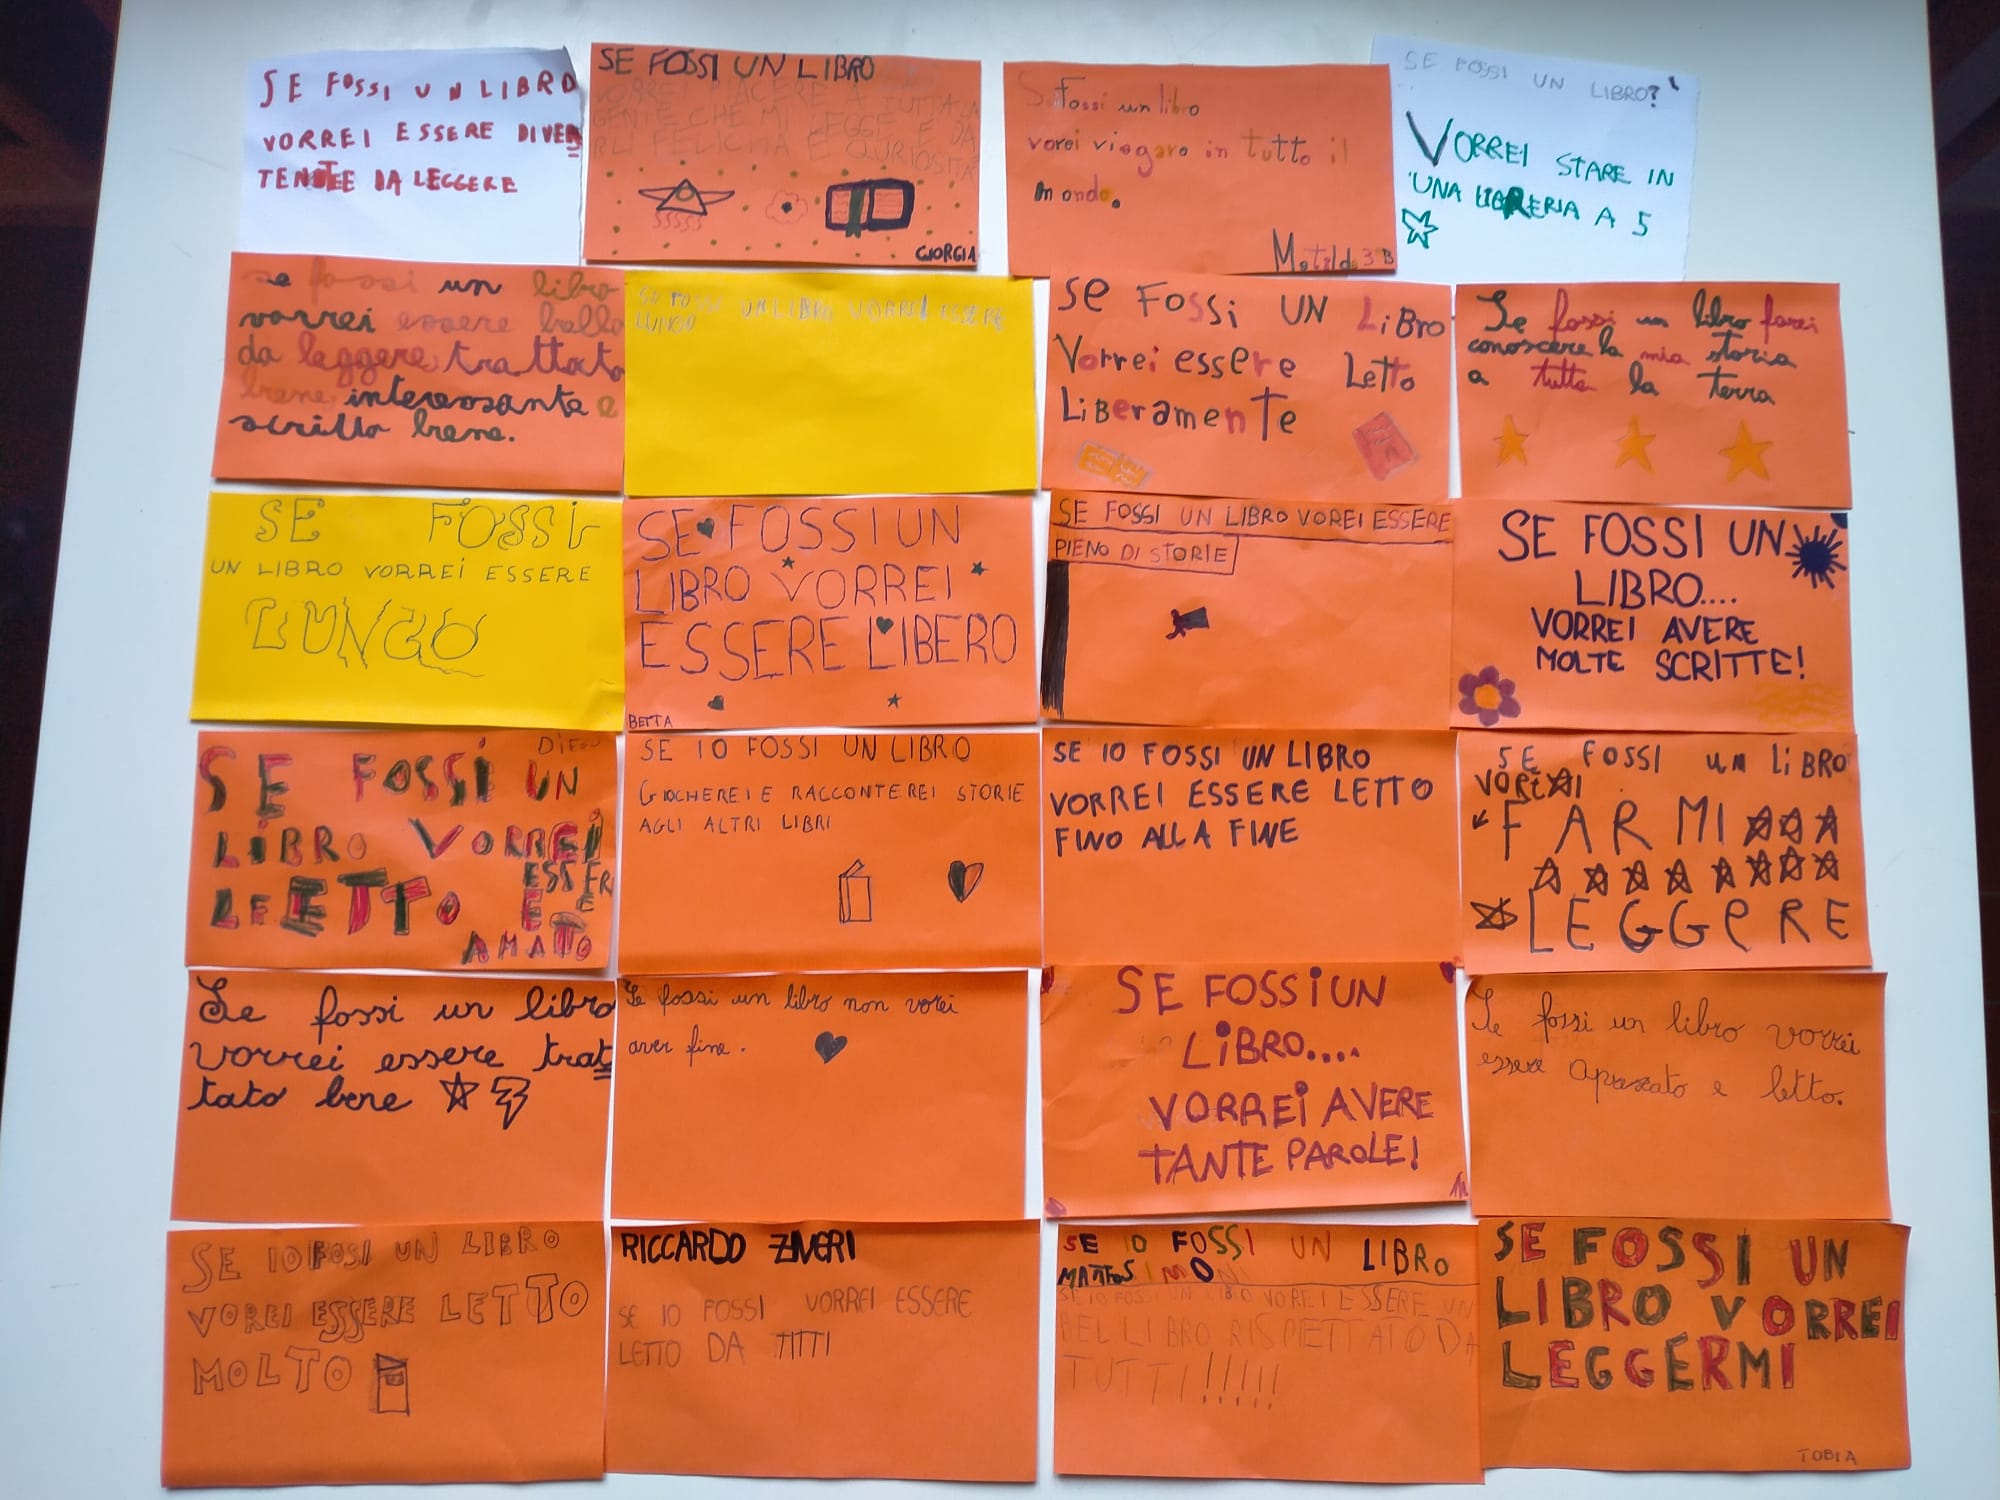 SE FOSSI UN LIBRO
VORREI ESSERE DIVER
TENTEE DA LEGGERE
SE FOSSI UN LIBRO
VORREI PIACERE A TUTTA LA
GENTE CHE MI LEGGE E DA
RLI FELICITÀ E QURIOSITÀ
GIORGIA
Se fossi un libro
vorei viagare in tutto il
mondo.
Matilde 3°B
SE FOSSI UN LIBRO?
VORREI STARE IN
UNA LIBRERIA A 5
se fossi un libro
vorrei essere bello
da leggere, trattato
bene, interessante e
scritto bene.
SE FOSSI UN LIBRO VORREI ESSERE
LUNGO
Se FoSSi UN LiBro
Vorrei essere Letto
LiBeramenTe
Se fossi un libro farei
conoscere la mia storia
a tutta la terra
SE FOSSI
UN LIBRO VORREI ESSERE
LUNGO
SE FOSSI UN
LIBRO VORREI
ESSERE LIBERO
BETTA
SE FOSSI UN LIBRO VOREI ESSERE
PIENO DI STORIE
SE FOSSI UN
LIBRO....
VORREI AVERE
MOLTE SCRITTE!
SE FOSSI UN
LIBRO VORREI
ESSER
LETTO E
AMATO
SE IO FOSSI UN LIBRO
GIOCHEREI E RACCONTEREI STORIE
AGLI ALTRI LIBRI
SE IO FOSSI UN LIBRO
VORREI ESSERE LETTO
FINO ALLA FINE
SE FOSSI UN LIBRO
FARMI
LEGGERE
Se fossi un libro
vorrei essere trat
tato bene
Se fossi un libro non vorei
aver fine.
SE FOSSI UN
LIBRO....
VORREI AVERE
TANTE PAROLE!
Se fossi un libro vorrei
essere aprezzato e letto.
SE IO FOSI UN LIBRO
VOREI ESSERE LETTO
MOLTO
RICCARDO ZIVERI
SE IO FOSSI VORREI ESSERE
LETTO DA TITTI
SE IO FOSSI UN LIBRO
SE IO FOSSI UN LIBRO VORREI ESSERE UN
BEL LIBRO RISPETTATO DA
TUTTI!!!!!
SE FOSSI UN
LIBRO VORREI
LEGGERMI
TOBIA